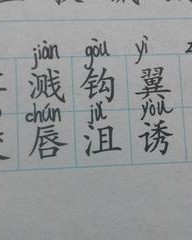 jiàn gōu yì
溅 钩 翼
chún jǔ yòu
唇 沮 诱